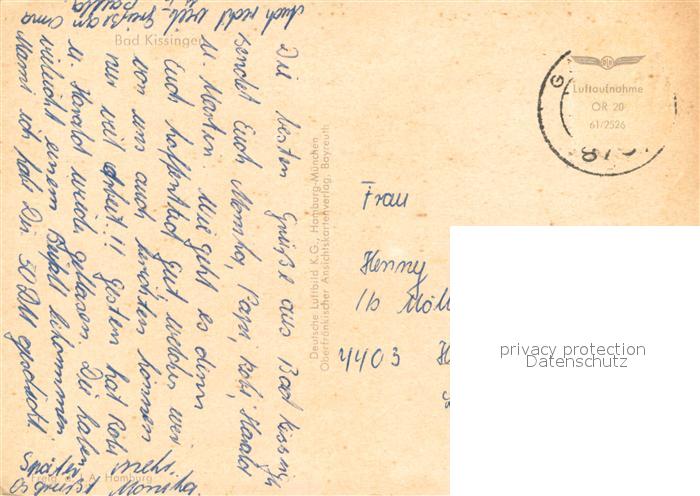 Bad Kissingen
Die besten Grüße aus Bad Kissingen
sendet Euch Monika, Papi, Robi, Harald
u. Morten. Wie geht es denn
Euch hoffentlich gut welches wir
von uns auch berichten können
nur viel Arbeit!! Gestern hat Robi
u. Harald wieder geblasen. Die haben
vielleicht einem Beifall bekommen
Mami ich hab Dir 50 DM geschickt.
Später mehr.
Es grüßt Monika
Auch recht viele Grüße an
Oma
Freig. d. A. Hamburg
Deutsche Luftbild K.G., Hamburg-München
Oberfränkischer Ansichtskartenverlag, Bayreuth
Luftaufnahme
OR 20
61/2526
Frau
Henny
4403
privacy protection
Datenschutz